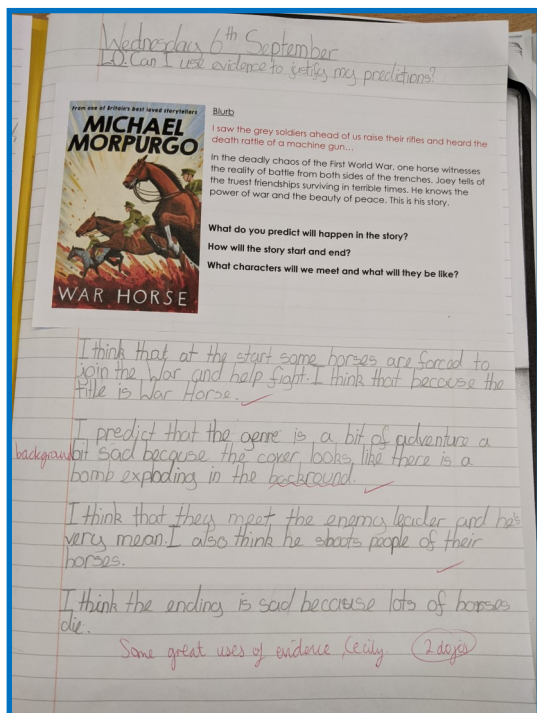 Wednesday 6th September
LO. Can I use evidence to justify my predictions?
From one of Britain's best loved storytellers
MICHAEL
MORPURGO
WAR HORSE
Blurb
I saw the grey soldiers ahead of us raise their rifles and heard the
death rattle of a machine gun…
In the deadly chaos of the First World War, one horse witnesses
the reality of battle from both sides of the trenches. Joey tells of
the truest friendships surviving in terrible times. He knows the
power of war and the beauty of peace. This is his story.
What do you predict will happen in the story?
How will the story start and end?
What characters will we meet and what will they be like?
I think that at the start some horses are forced to
join the War and help fight. I think that because the
title is War Horse.
I predict that the genre is a bit of adventure a
background
bit sad because the cover looks like there is a
bomb exploding in the backround.
I think that they meet the enemy leader and he's
very mean. I also think he shoots people of their
horses.
I think the ending is sad because lots of horses
die.
Some great uses of evidence, Cecily 2 dojos